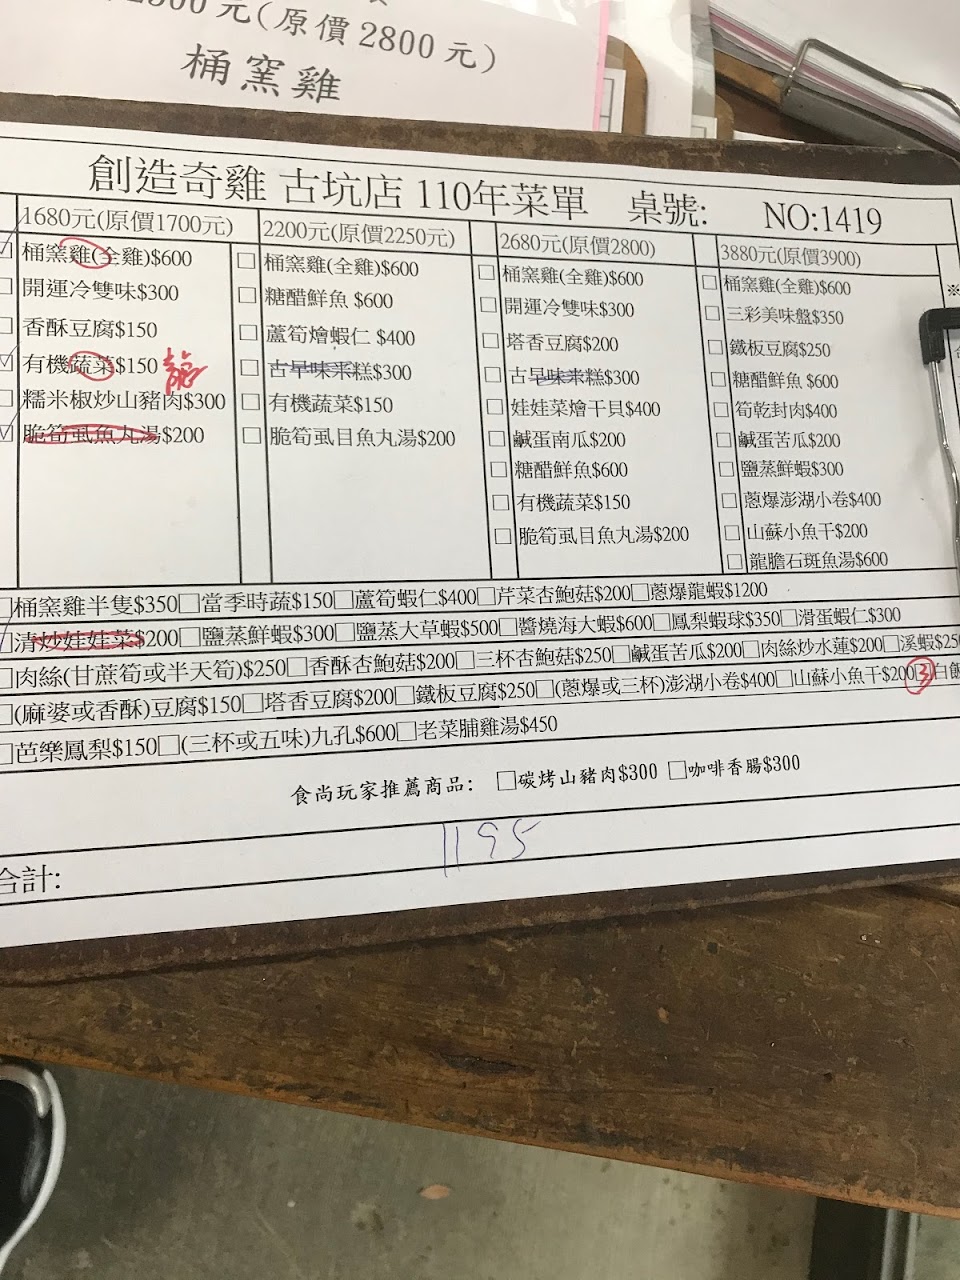 元(原價2800元)
桶窯雞
創造奇雞 古坑店 110年菜單 桌號: NO:1419
1680元(原價1700元)
桶窯雞(全雞)$600
開運冷雙味$300
香酥豆腐$150
有機蔬菜$150 龍
糯米椒炒山豬肉$300
脆筍虱魚丸湯$200
2200元(原價2250元)
桶窯雞(全雞)$600
糖醋鮮魚 $600
蘆筍燴蝦仁 $400
古早味米糕$300
有機蔬菜$150
脆筍虱目魚丸湯$200
2680元(原價2800)
桶窯雞(全雞)$600
開運冷雙味$300
塔香豆腐$200
古早味米糕$300
娃娃菜燴干貝$400
鹹蛋南瓜$200
糖醋鮮魚$600
有機蔬菜$150
脆筍虱目魚丸湯$200
3880元(原價3900)
桶窯雞(全雞)$600
三彩美味盤$350
鐵板豆腐$250
糖醋鮮魚 $600
筍乾封肉$400
鹹蛋苦瓜$200
鹽蒸鮮蝦$300
蔥爆澎湖小卷$400
山蘇小魚干$200
龍膽石斑魚湯$600
※
桶窯雞半隻$350□當季時蔬$150□蘆筍蝦仁$400□芹菜杏鮑菇$200□蔥爆龍蝦$1200
清炒娃娃菜$200□鹽蒸鮮蝦$300□鹽蒸大草蝦$500□醬燒海大蝦$600□鳳梨蝦球$350□滑蛋蝦仁$300
□肉絲(甘蔗筍或半天筍)$250□香酥杏鮑菇$200□三杯杏鮑菇$250□鹹蛋苦瓜$200□肉絲炒水蓮$200□溪蝦$250
□(麻婆或香酥)豆腐$150□塔香豆腐$200□鐵板豆腐$250□(蔥爆或三杯)澎湖小卷$400□山蘇小魚干$200 3 白飯
□芭樂鳳梨$150□(三杯或五味)九孔$600□老菜脯雞湯$450
食尚玩家推薦商品: □碳烤山豬肉$300 □咖啡香腸$300
1195
合計: